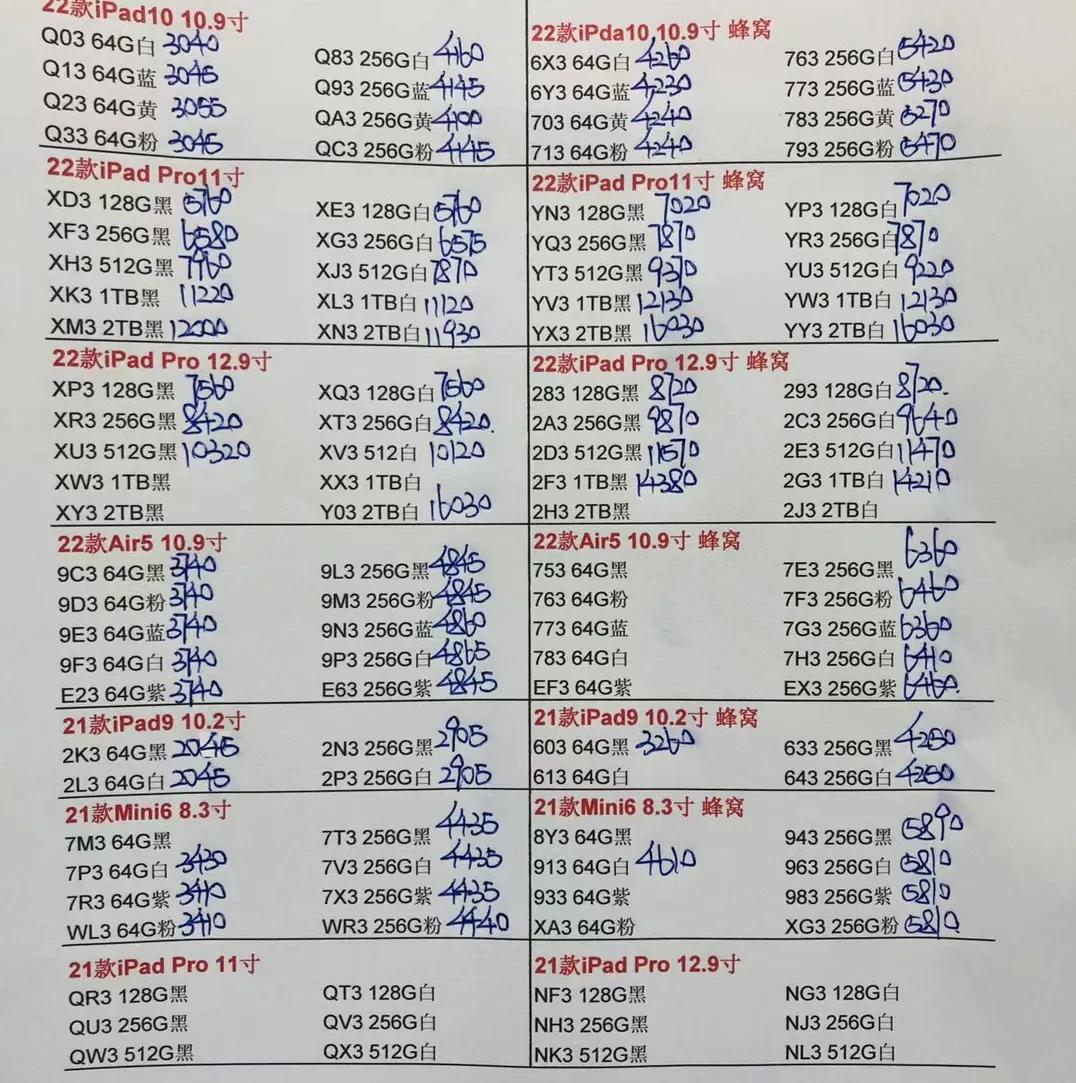 22款iPad10 10.9寸
Q03 64G白 3040 Q83 256G白 4160
Q13 64G蓝 3045 Q93 256G蓝 4145
Q23 64G黄 3055 QA3 256G黄 4100
Q33 64G粉 3045 QC3 256G粉 4145
22款iPda10 10.9寸 蜂窝
6X3 64G白 4260 763 256G白 5420
6Y3 64G蓝 4230 773 256G蓝 5430
703 64G黄 4240 783 256G黄 5270
713 64G粉 4240 793 256G粉 5470
22款iPad Pro11寸
XD3 128G黑 5760 XE3 128G白 5760
XF3 256G黑 6580 XG3 256G白 6575
XH3 512G黑 7960 XJ3 512G白 7870
XK3 1TB黑 11220 XL3 1TB白 11120
XM3 2TB黑 12000 XN3 2TB白 11930
22款iPad Pro11寸 蜂窝
YN3 128G黑 7020 YP3 128G白 7020
YQ3 256G黑 7870 YR3 256G白 7870
YT3 512G黑 9370 YU3 512G白 9220
YV3 1TB黑 12130 YW3 1TB白 12130
YX3 2TB黑 16030 YY3 2TB白 16030
22款iPad Pro 12.9寸
XP3 128G黑 7560 XQ3 128G白 7560
XR3 256G黑 8420 XT3 256G白 8420.
XU3 512G黑 10320 XV3 512白 10120
XW3 1TB黑 XX3 1TB白
XY3 2TB黑 Y03 2TB白 16030
22款iPad Pro 12.9寸 蜂窝
283 128G黑 8720 293 128G白 8720.
2A3 256G黑 9870 2C3 256G白 9640
2D3 512G黑 11570 2E3 512G白 11470
2F3 1TB黑 14380 2G3 1TB白 14210
2H3 2TB黑 2J3 2TB白
22款Air5 10.9寸
9C3 64G黑 3740 9L3 256G黑 4845
9D3 64G粉 3740 9M3 256G粉 4845
9E3 64G蓝 3740 9N3 256G蓝 4860
9F3 64G白 3740 9P3 256G白 4865
E23 64G紫 3740 E63 256G紫 4845
22款Air5 10.9寸 蜂窝
753 64G黑 7E3 256G黑 6360
763 64G粉 7F3 256G粉 6460
773 64G蓝 7G3 256G蓝 6360
783 64G白 7H3 256G白 6410
EF3 64G紫 EX3 256G紫 6460.
21款iPad9 10.2寸
2K3 64G黑 2045 2N3 256G黑 2905
2L3 64G白 2045 2P3 256G白 2905
21款iPad9 10.2寸 蜂窝
603 64G黑 3260 633 256G黑 4250
613 64G白 643 256G白 4250
21款Mini6 8.3寸
7M3 64G黑 7T3 256G黑 4435
7P3 64G白 3430 7V3 256G白 4435
7R3 64G紫 3410 7X3 256G紫 4435
WL3 64G粉 3410 WR3 256G粉 4440
21款Mini6 8.3寸 蜂窝
8Y3 64G黑 943 256G黑 5890
913 64G白 4610 963 256G白 5810
933 64G紫 983 256G紫 5810
XA3 64G粉 XG3 256G粉 5810.
21款iPad Pro 11寸
QR3 128G黑 QT3 128G白
QU3 256G黑 QV3 256G白
QW3 512G黑 QX3 512G白
21款iPad Pro 12.9寸
NF3 128G黑 NG3 128G白
NH3 256G黑 NJ3 256G白
NK3 512G黑 NL3 512G白